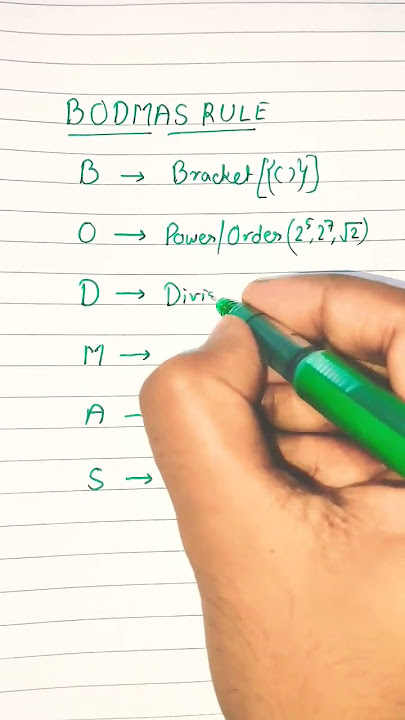 BODMAS RULE
B → Bracket [{( )}]
O → Power/Order (2⁵, 2⁷, √2)
D → Divis
M →
A -
S →